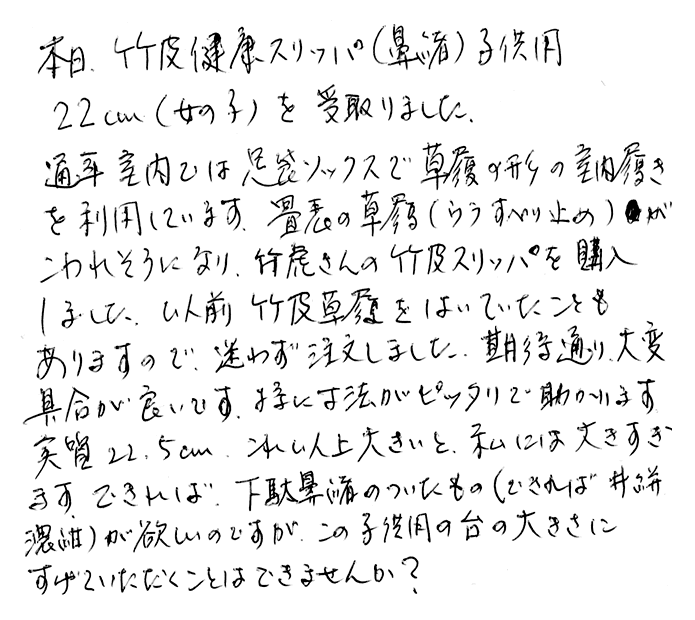 本日、竹皮健康スリッパ(鼻緒)子供用
22cm(女の子)を受取りました。
通年室内では足袋ソックスで草履の形の室内履き
を利用しています。畳表の草履(うらすべり止め)が
こわれそうになり、竹虎さんの竹皮スリッパを購入
しました。以前竹皮草履をはいていたことも
ありますので、迷わず注文しました。期待通り、大変
具合が良いです。特に寸法がピッタリで助かります
実質22.5cm。これ以上大きいと、私には大きすぎ
ます。できれば、下駄鼻緒のついたもの(できれば井絣
濃紺)が欲しいのですが、この子供用の台の大きさに
すげていただくことはできませんか?